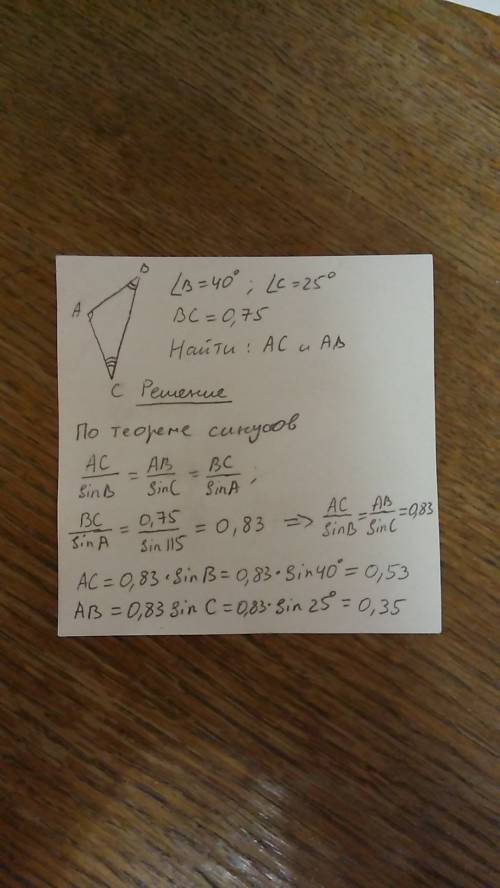 B
A
C
∠B=40°; ∠C=25°
BC=0,75
Найти: AC и AB
Решение
По теореме синусов
AC/sinB = AB/sinC = BC/sinA;
BC/sinA = 0,75/sin115 = 0,83 => AC/sinB = AB/sinC = 0,83
AC=0,83·sinB=0,83·sin40°=0,53
AB=0,83 sin C=0,83·sin 25°=0,35